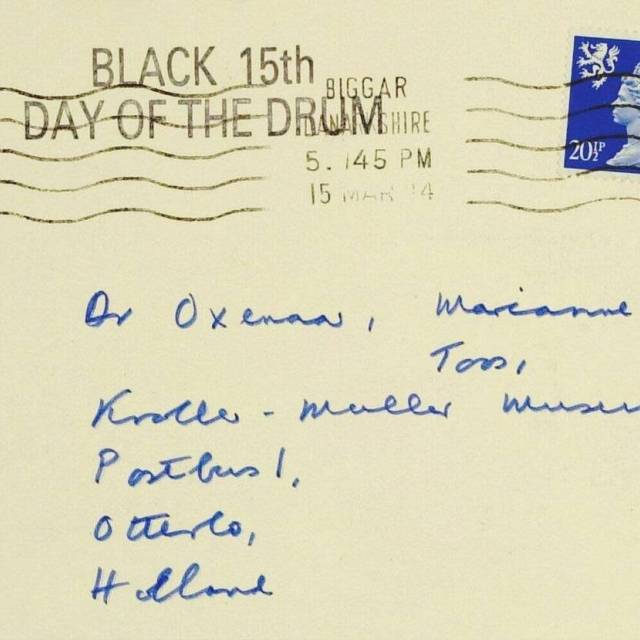 BLACK 15th
DAY OF THE DRUM
BIGGAR
LANARKSHIRE
5. 145 PM
15 MAR 4
20½P
Dr Oxenaar, Marianne
Toos,
Kroller - Muller Museu
Postbus 1,
Otterlo,
Holland